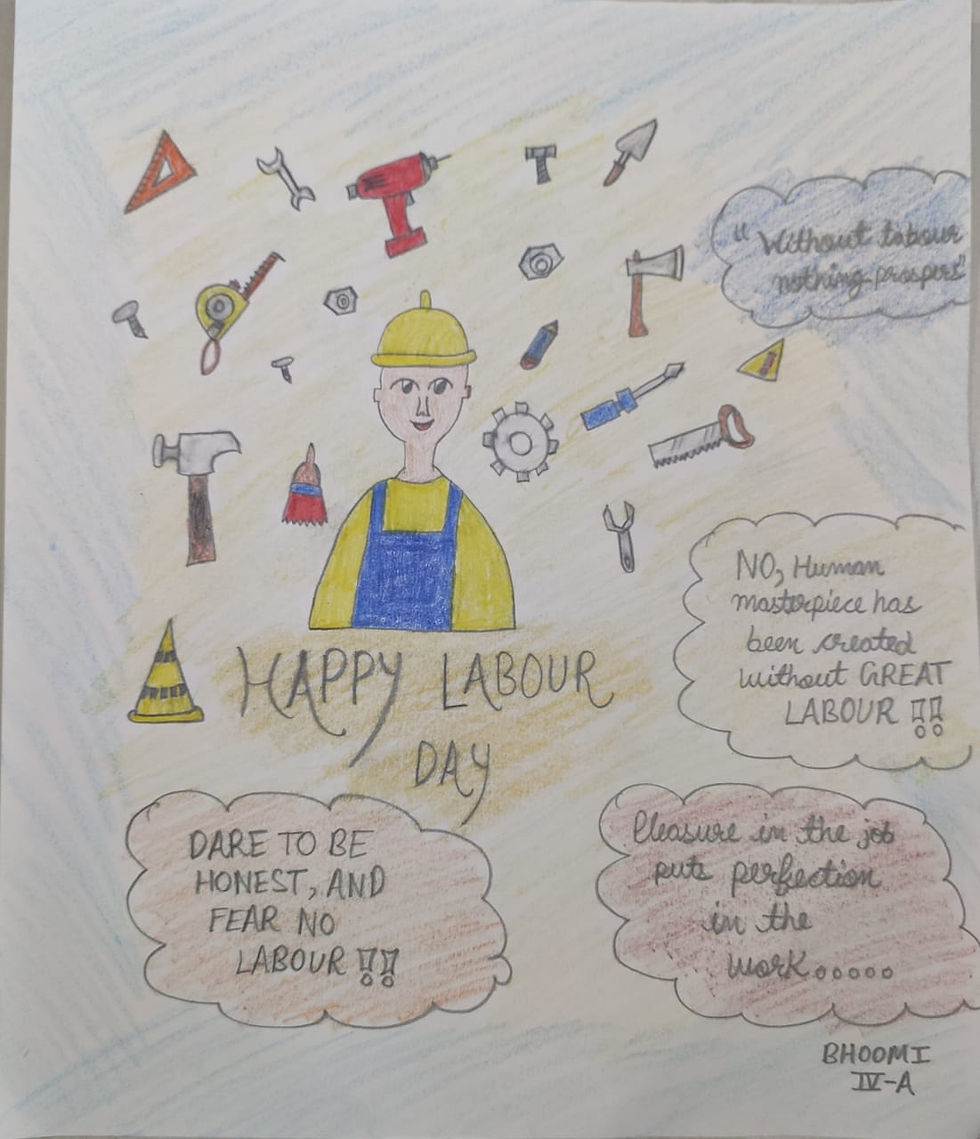 "Without labour
nothing prospers"
NO, Human
masterpiece has
been created
without GREAT
LABOUR !!
HAPPY LABOUR
DAY
DARE TO BE
HONEST, AND
FEAR NO
LABOUR !!
Pleasure in the job
puts perfection
in the
work.....
BHOOMI
IV-A